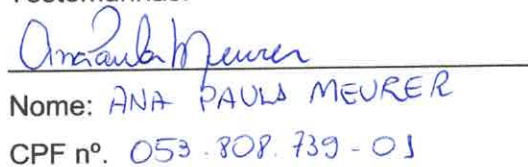 Testemunhas:
Ana Paula Meurer
Nome: ANA PAULA MEURER
CPF nº. 053.808.739-01